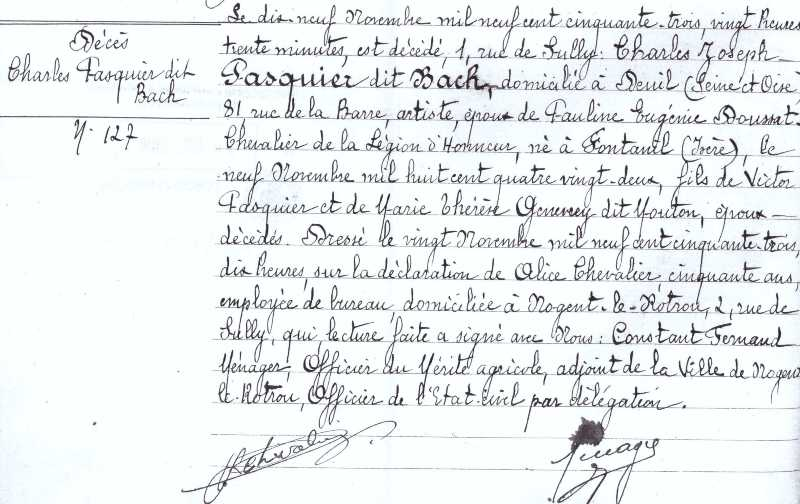 Décès
Charles Pasquier dit
Bach
N. 127
Le dix-neuf Novembre mil neuf cent cinquante-trois, vingt heures
trente minutes, est décédé, 1, rue de Sully: Charles Joseph—
Pasquier dit Bach, domicilié à Deuil (Seine et Oise
81 rue de la Barre, artiste, époux de Pauline Eugénie Doussat-
Chevalier de la Légion d'Honneur, né à Fontanil (Isère), le
neuf Novembre mil huit cent quatre vingt-deux, fils de Victor
Pasquier et de Marie Thérèse Genevey dit Mouton, époux—
décédés. Dressé le vingt Novembre mil neuf cent cinquante-trois,
dix heures, sur la déclaration de Alice Chevalier, cinquante ans,
employée de bureau, domiciliée à Nogent-le-Rotrou, 2, rue de
Sully, qui, lecture faite a signé avec Nous: Constant Fernand
Ménager, Officier du Mérite agricole, adjoint de la Ville de Nogent
le-Rotrou, Officier de l'Etat-civil par délégation.